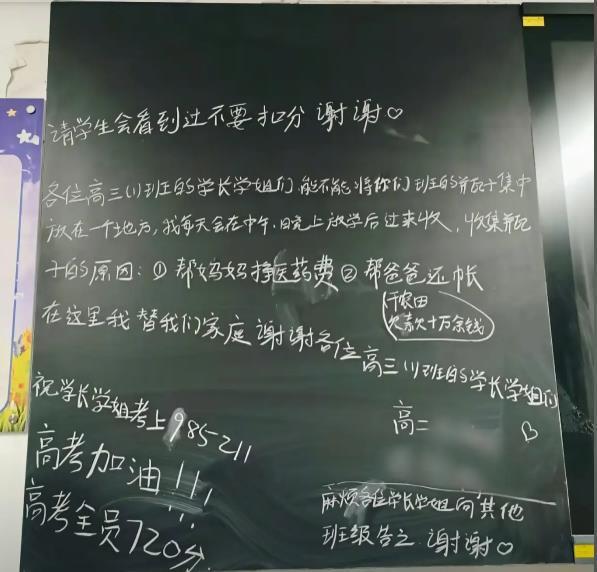 请学生会看到过不要扣分 谢谢♡
各位高三(1)班的学长学姐们,能不能将你们班的瓶子集中
放在一个地方,我每天会在中午、晚上放学后过来收,收集瓶
子的原因:① 帮妈妈挣医药费② 帮爸爸还帐
干农田
欠款十万余钱
在这里我替我们家庭谢谢各位高三(1)班的学长学姐们
祝学长学姐考上985 211
高二 ♡
高考加油!!!
高考全员720分
麻烦各位学长学姐向其他
班级告之 谢谢♡